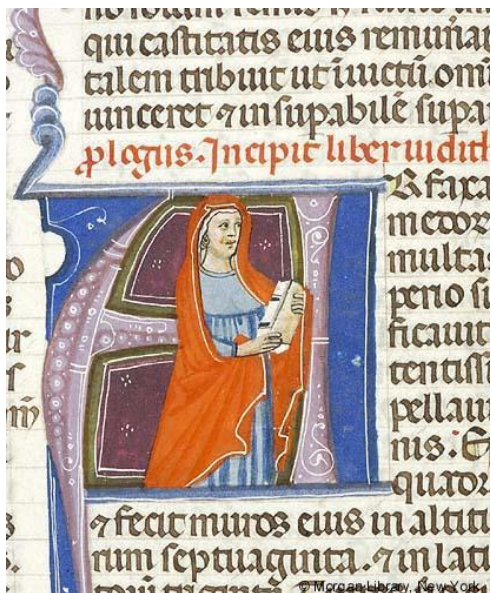 qui castitatis eius remuñat
talem tribuit ut iuictū omī
uinceret ⁊ insupabilē supa
plogus. Incipit liber iudith
A Rfaxa
medor
multas
perio su
ficauit
tentissi
pellaui
nis. E
quador
⁊ fecit muros eius in altitu
rum septuaginta. ⁊ in lati
© Morgan Library, New York